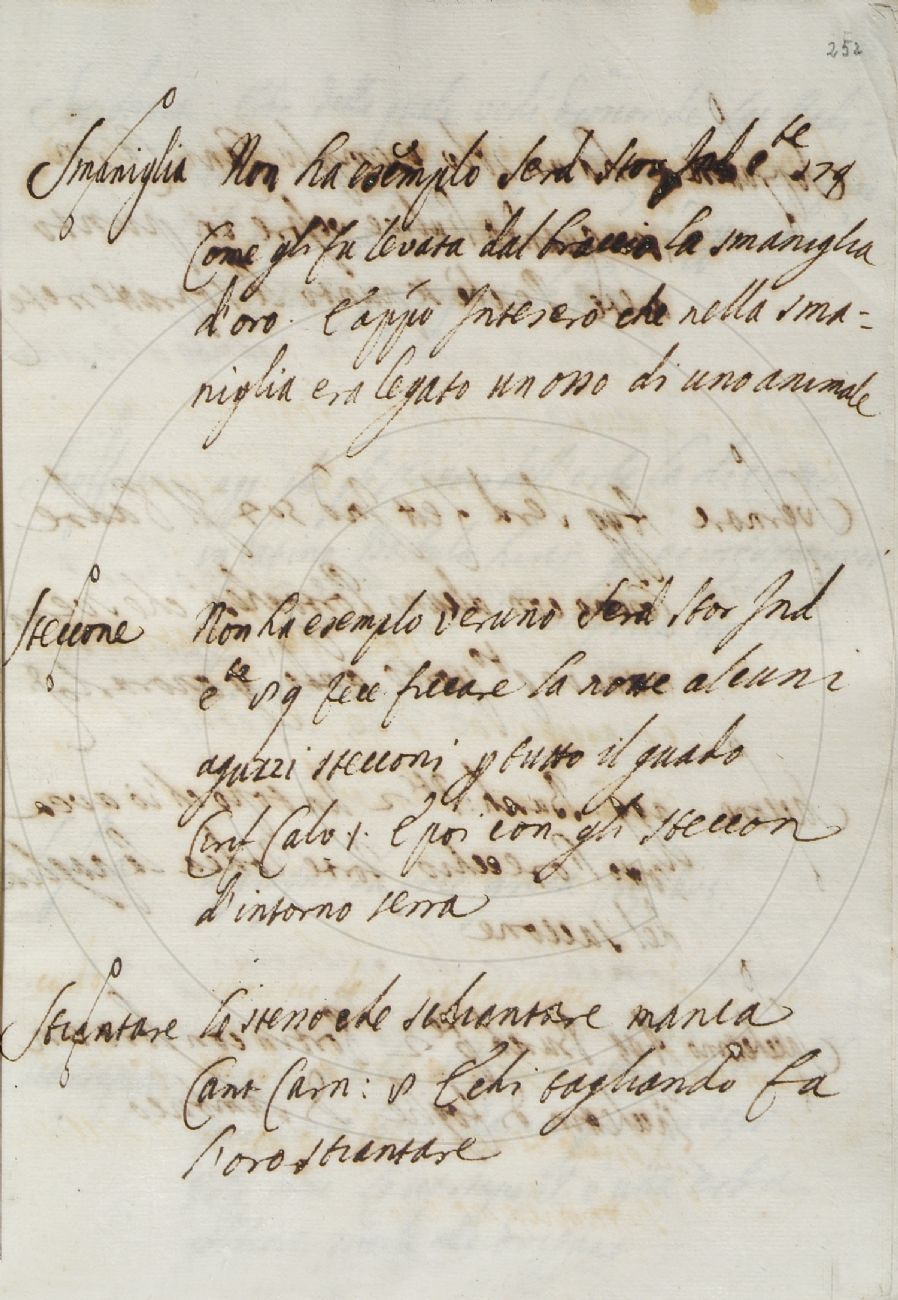 252
Smaniglia Non ha esempio Serd Stor Ind e te 578
Come gli fu levata dal braccio la smaniglia
d'oro. E appo Intesero che nella sma=
niglia era legato un osso di uno animale
Steccone Non ha esemplo veruno Serd Stor Ind
e te fece ficcare la notte alcuni
aguzzi stecconi p tutto il guado
Cirif Calv 1. E poi con gli steccon
d'intorno serra
Stiantare lo stesso che schiantare manca
Cant Carn: E chi tagliando fa
l'oro stiantare